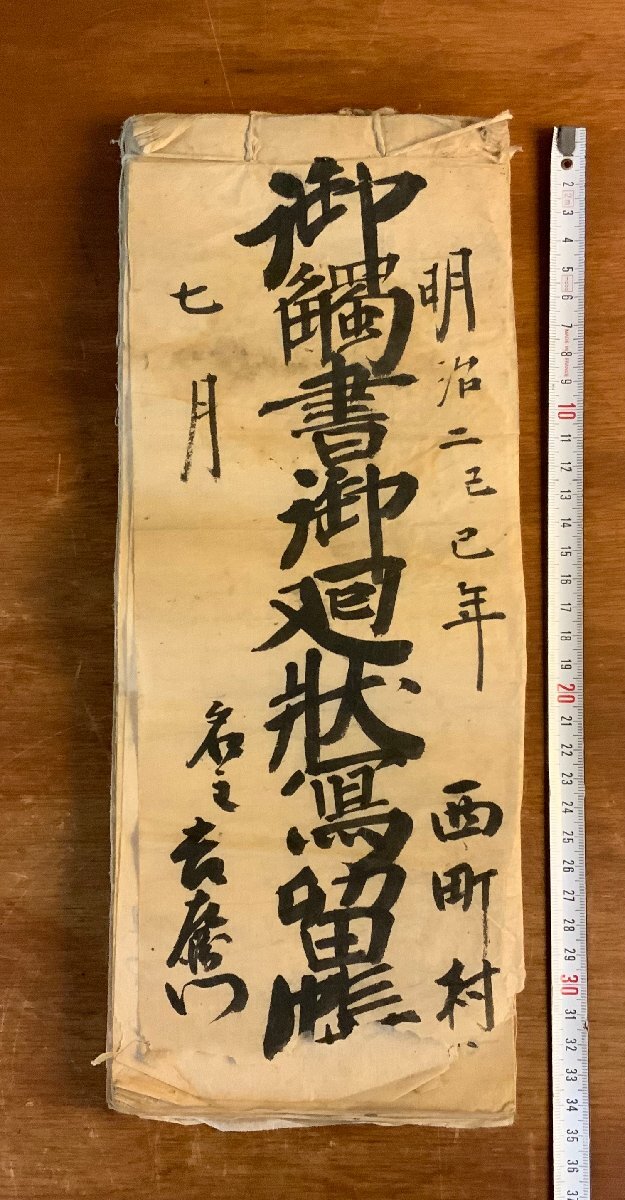 明治二己巳年
西町村
御觸書御廻狀寫留帳
七月
名主
吉右衛門
2
3
4
5
6
7
8
9
10
11
12
13
14
15
16
17
18
19
20
21
22
23
24
25
26
27
28
29
30
31
32
33
34
35
36